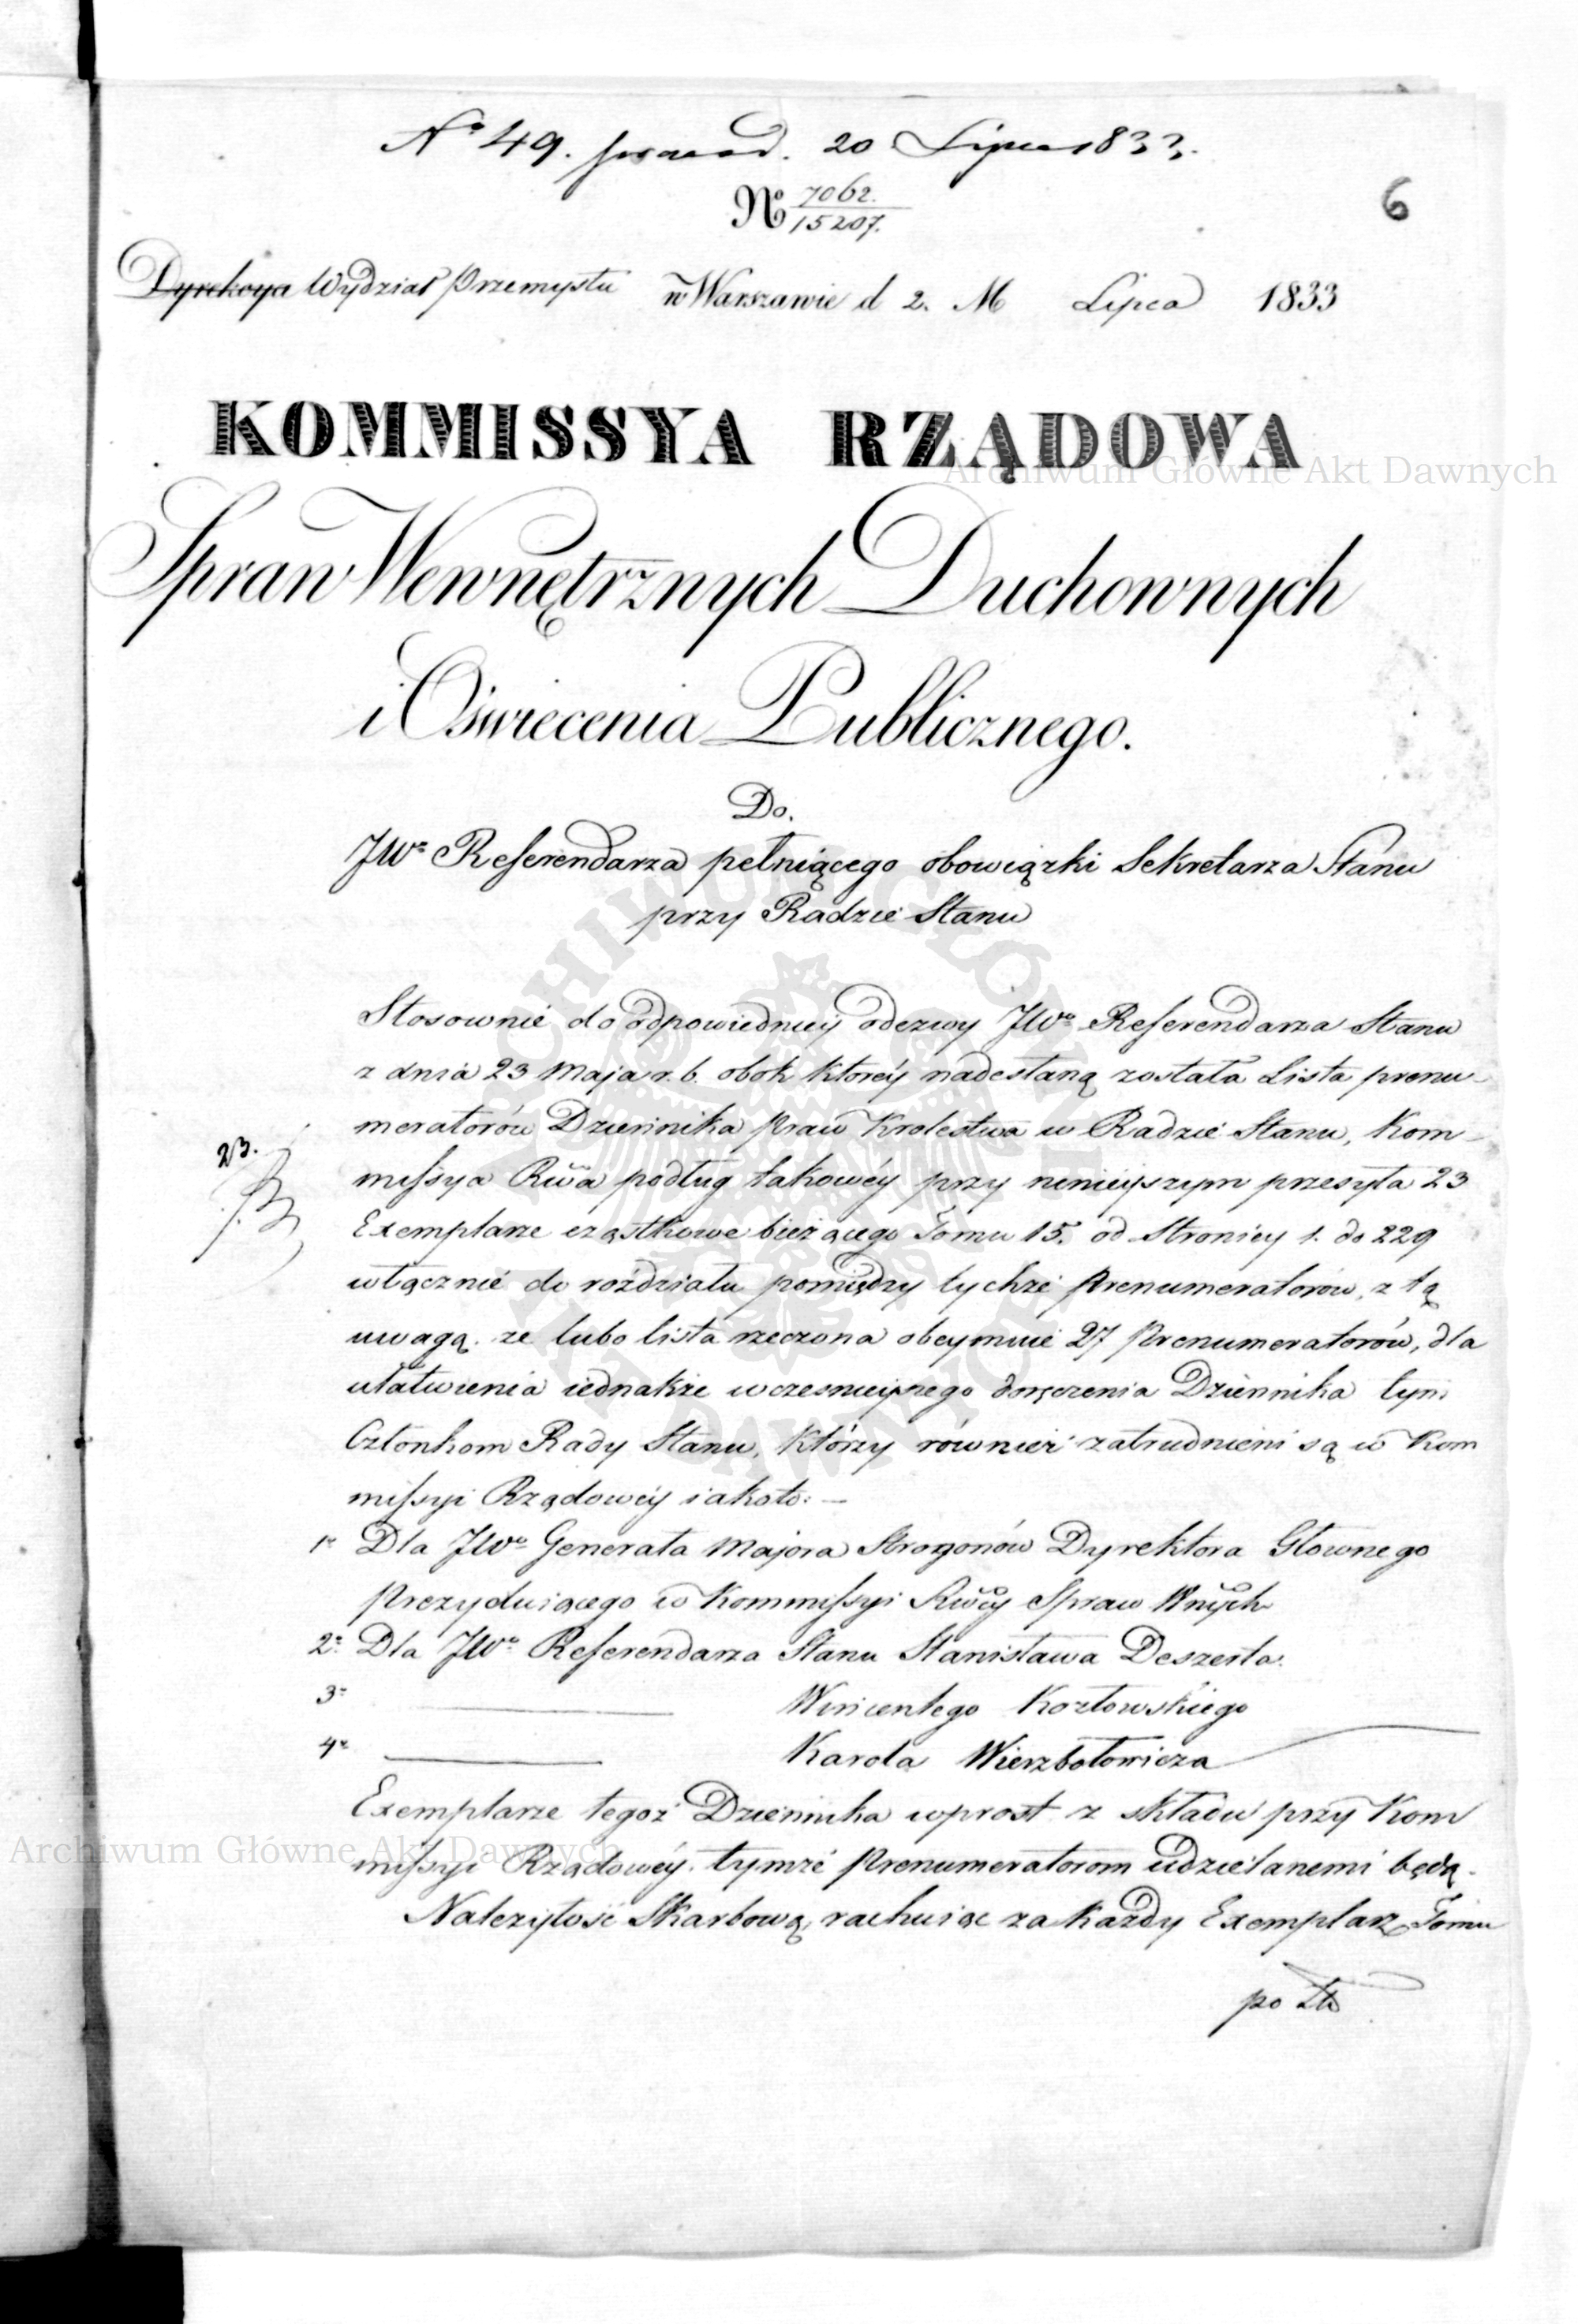 No 49. 20 Lipca 1833.
No 7062./15207.
6
Dyrekcya Wydział Przemysłu w Warszawie d 2. M Lipca 1833
KOMMISSYA RZĄDOWA
Spraw Wewnętrznych Duchownych
i Oświecenia Publicznego.
Do.
JWo Referendarza pełniącego obowiązki Sekretarza Stanu
przy Radzie Stanu
Stosownie do odpowiedniey odezwy JWo Referendarza Stanu
z dnia 23 Maja r. b. obok ktoréy nadesłaną została Lista prenu-
meratorów Dziennika Praw Krolestwa w Radzie Stanu, Kom-
missya Rwa podług takowéy przy ninieyszym przesyła 23
Exemplarze cząstkowe bieżącego Tomu 15. od Stronicy 1. do 229
włącznie do rozdziału pomiędzy tychże Prenumeratorów, z tą
uwagą, że lubo lista rzeczona obeymuie 27 Prenumeratorów, dla
ułatwienia iednakże wcześnieyszego doręczenia Dziennika tym
Członkom Rady Stanu, którzy również zatrudnieni są w Kom
missyi Rządowéy iakoto: —
1o Dla JWo Generała Majora Strogonów Dyrektora Głownego
Prezyduiącego w Kommissyi Rwéy Spraw Wnych
2o Dla JWo Referendarza Stanu Stanisława Deszerta.
3o — Wincentego Kozłowskiego
4o — Karola Wierzbołowicza
Exemplarze tegoż Dziennika wprost z składu przy Kom
missyi Rządowéy tymże Prenumeratorom udzielanemi będą.
Należytość Skarbową, rachuiąc za każdy Exemplarz Tomu
po Zło
23.
Archiwum Główne Akt Dawnych
Archiwum Główne Akt Dawnych
ARCHIWUM GŁÓWNE AKT DAWNYCH